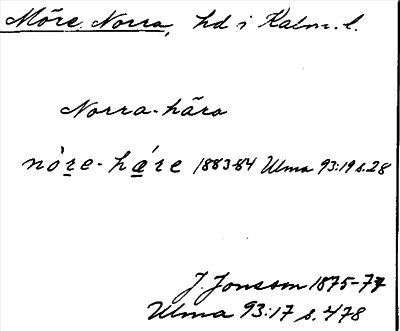 Möre Norra, hd i Kalm. l.
Norra-hära
nò̱re-hǽ̱re 1883-84 Ulma 93:19 s.28
J. Jonsson 1875-77
Ulma 93:17 s.478